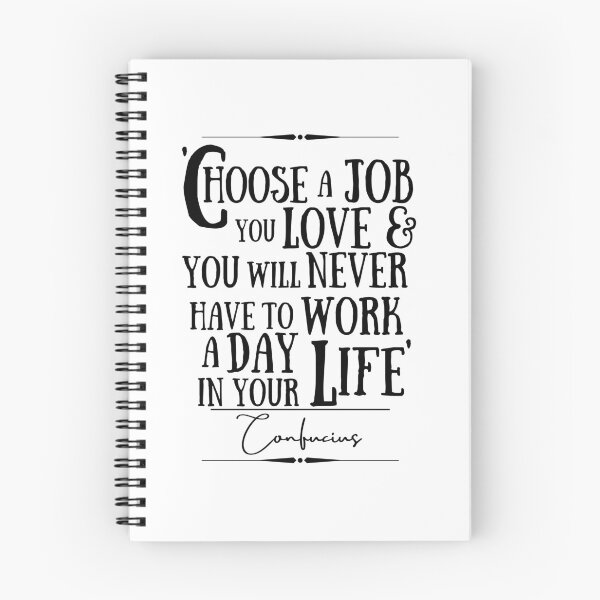 'CHOOSE A JOB
YOU LOVE &
YOU WILL NEVER
HAVE TO WORK
A DAY
IN YOUR LIFE'
Confucius